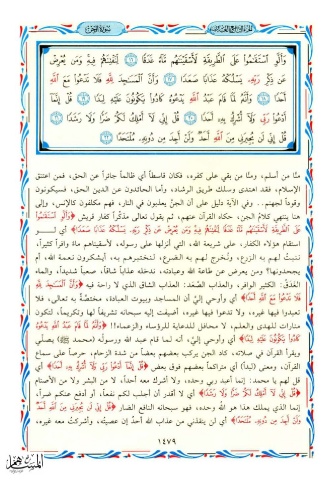 سورة الجن
الجزء التاسع والعشرون
وَأَلَّوِ ٱسْتَقَٰمُوا۟ عَلَى ٱلطَّرِيقَةِ لَأَسْقَيْنَٰهُم مَّآءً غَدَقًا ﴿١٦﴾ لِّنَفْتِنَهُمْ فِيهِ وَمَن يُعْرِضْ
عَن ذِكْرِ رَبِّهِۦ يَسْلُكْهُ عَذَابًا صَعَدًا ﴿١٧﴾ وَأَنَّ ٱلْمَسَٰجِدَ لِلَّهِ فَلَا تَدْعُوا۟ مَعَ ٱللَّهِ
أَحَدًا ﴿١٨﴾ وَأَنَّهُۥ لَمَّا قَامَ عَبْدُ ٱللَّهِ يَدْعُوهُ كَادُوا۟ يَكُونُونَ عَلَيْهِ لِبَدًا ﴿١٩﴾ قُلْ إِنَّمَآ
أَدْعُوا۟ رَبِّى وَلَآ أُشْرِكُ بِهِۦٓ أَحَدًا ﴿٢٠﴾ قُلْ إِنِّى لَآ أَمْلِكُ لَكُمْ ضَرًّا وَلَا رَشَدًا ﴿٢١﴾
قُلْ إِنِّى لَن يُجِيرَنِى مِنَ ٱللَّهِ أَحَدٌ وَلَنْ أَجِدَ مِن دُونِهِۦ مُلْتَحَدًا ﴿٢٢﴾
منّا من أسلم، ومنّا من بقي على كفره، فكان قاسطاً أي ظالماً جائراً عن الحق، فمن اعتنق
الإسلام، فقد اهتدى وسلك طريق الرشاد، وأما الحائدون عن الدين الحق، فسيكونون
وقوداً لجهنم.. وفي الآية دليل على أن الجنَّ يعذبون في النار، فهم مكلفون كالإنس، وإلى
هنا ينتهي كلامُ الجن، حكاه القرآن عنهم، ثم يقول تعالى مذكّراً كفار قريش ﴿وَأَلَّوِ ٱسْتَقَٰمُوا۟
عَلَى ٱلطَّرِيقَةِ لَأَسْقَيْنَٰهُم مَّآءً غَدَقًا لِّنَفْتِنَهُمْ فِيهِ وَمَن يُعْرِضْ عَن ذِكْرِ رَبِّهِۦ يَسْلُكْهُ عَذَابًا صَعَدًا﴾ أي لو
استقام هؤلاء الكفار، على شريعة الله، التي أنزلها على رسوله، لأسقيناهم ماءً وافراً كثيراً،
ننبتُ لهم به الزرع، ونُخرج لهم به الضرع، لنختبرهم به، أيشكرون نعمة الله، أم
يجحدونها؟ ومن يعرض عن طاعة الله وعبادته، ندخله عذاباً شاقاً، صعباً شديداً، والماء
الغَدَق: الكثير الوافر، والعذاب الصَّعد: العذاب الشاق الذي لا راحة فيه ﴿وَأَنَّ ٱلْمَسَٰجِدَ لِلَّهِ
فَلَا تَدْعُوا۟ مَعَ ٱللَّهِ أَحَدًا﴾ أي وأوحي إليَّ أن المساجد وبيوت العبادة، مختصَّةٌ به تعالى، فلا
تعبدوا فيها غيره، ولا تدعوا فيها غيره، أضيفت إليه سبحانه تشريفاً لها وتكريماً، لتكون
منارات للهدى والعلم، لا محافل للدعاية للرؤساء والزعماء!! ﴿وَأَنَّهُۥ لَمَّا قَامَ عَبْدُ ٱللَّهِ يَدْعُوهُ
كَادُوا۟ يَكُونُونَ عَلَيْهِ لِبَدًا﴾ أي وأوحي إليَّ، أنه لما قام عبد الله ورسوله (محمد ﷺ) يصلّي
ويقرأ القرآن في صلاته، كاد الجن يركب بعضهم بعضاً من شدة الزحام، حرصاً على سماع
القرآن، ومعنى (لبداً) أي متراكماً بعضهم فوق بعض ﴿قُلْ إِنَّمَآ أَدْعُوا۟ رَبِّى وَلَآ أُشْرِكُ بِهِۦٓ أَحَدًا﴾ أي
قل لهم يا محمد: إنما أعبد ربي وحده، ولا أشرك معه أحداً، لا من البشر ولا من الأصنام
﴿قُلْ إِنِّى لَآ أَمْلِكُ لَكُمْ ضَرًّا وَلَا رَشَدًا﴾ أي لا أقدر أن أجلب لكم نفعاً، أو أدفع عنكم ضراً،
إنما الذي يملك هذا هو الله وحده، فهو سبحانه النافع الضار ﴿قُلْ إِنِّى لَن يُجِيرَنِى مِنَ ٱللَّهِ أَحَدٌ
وَلَنْ أَجِدَ مِن دُونِهِۦ مُلْتَحَدًا﴾ أي لن ينقذني من عذاب الله أحدٌ إن عصيته، وأشركتُ معه غيره،
١٤٧٩